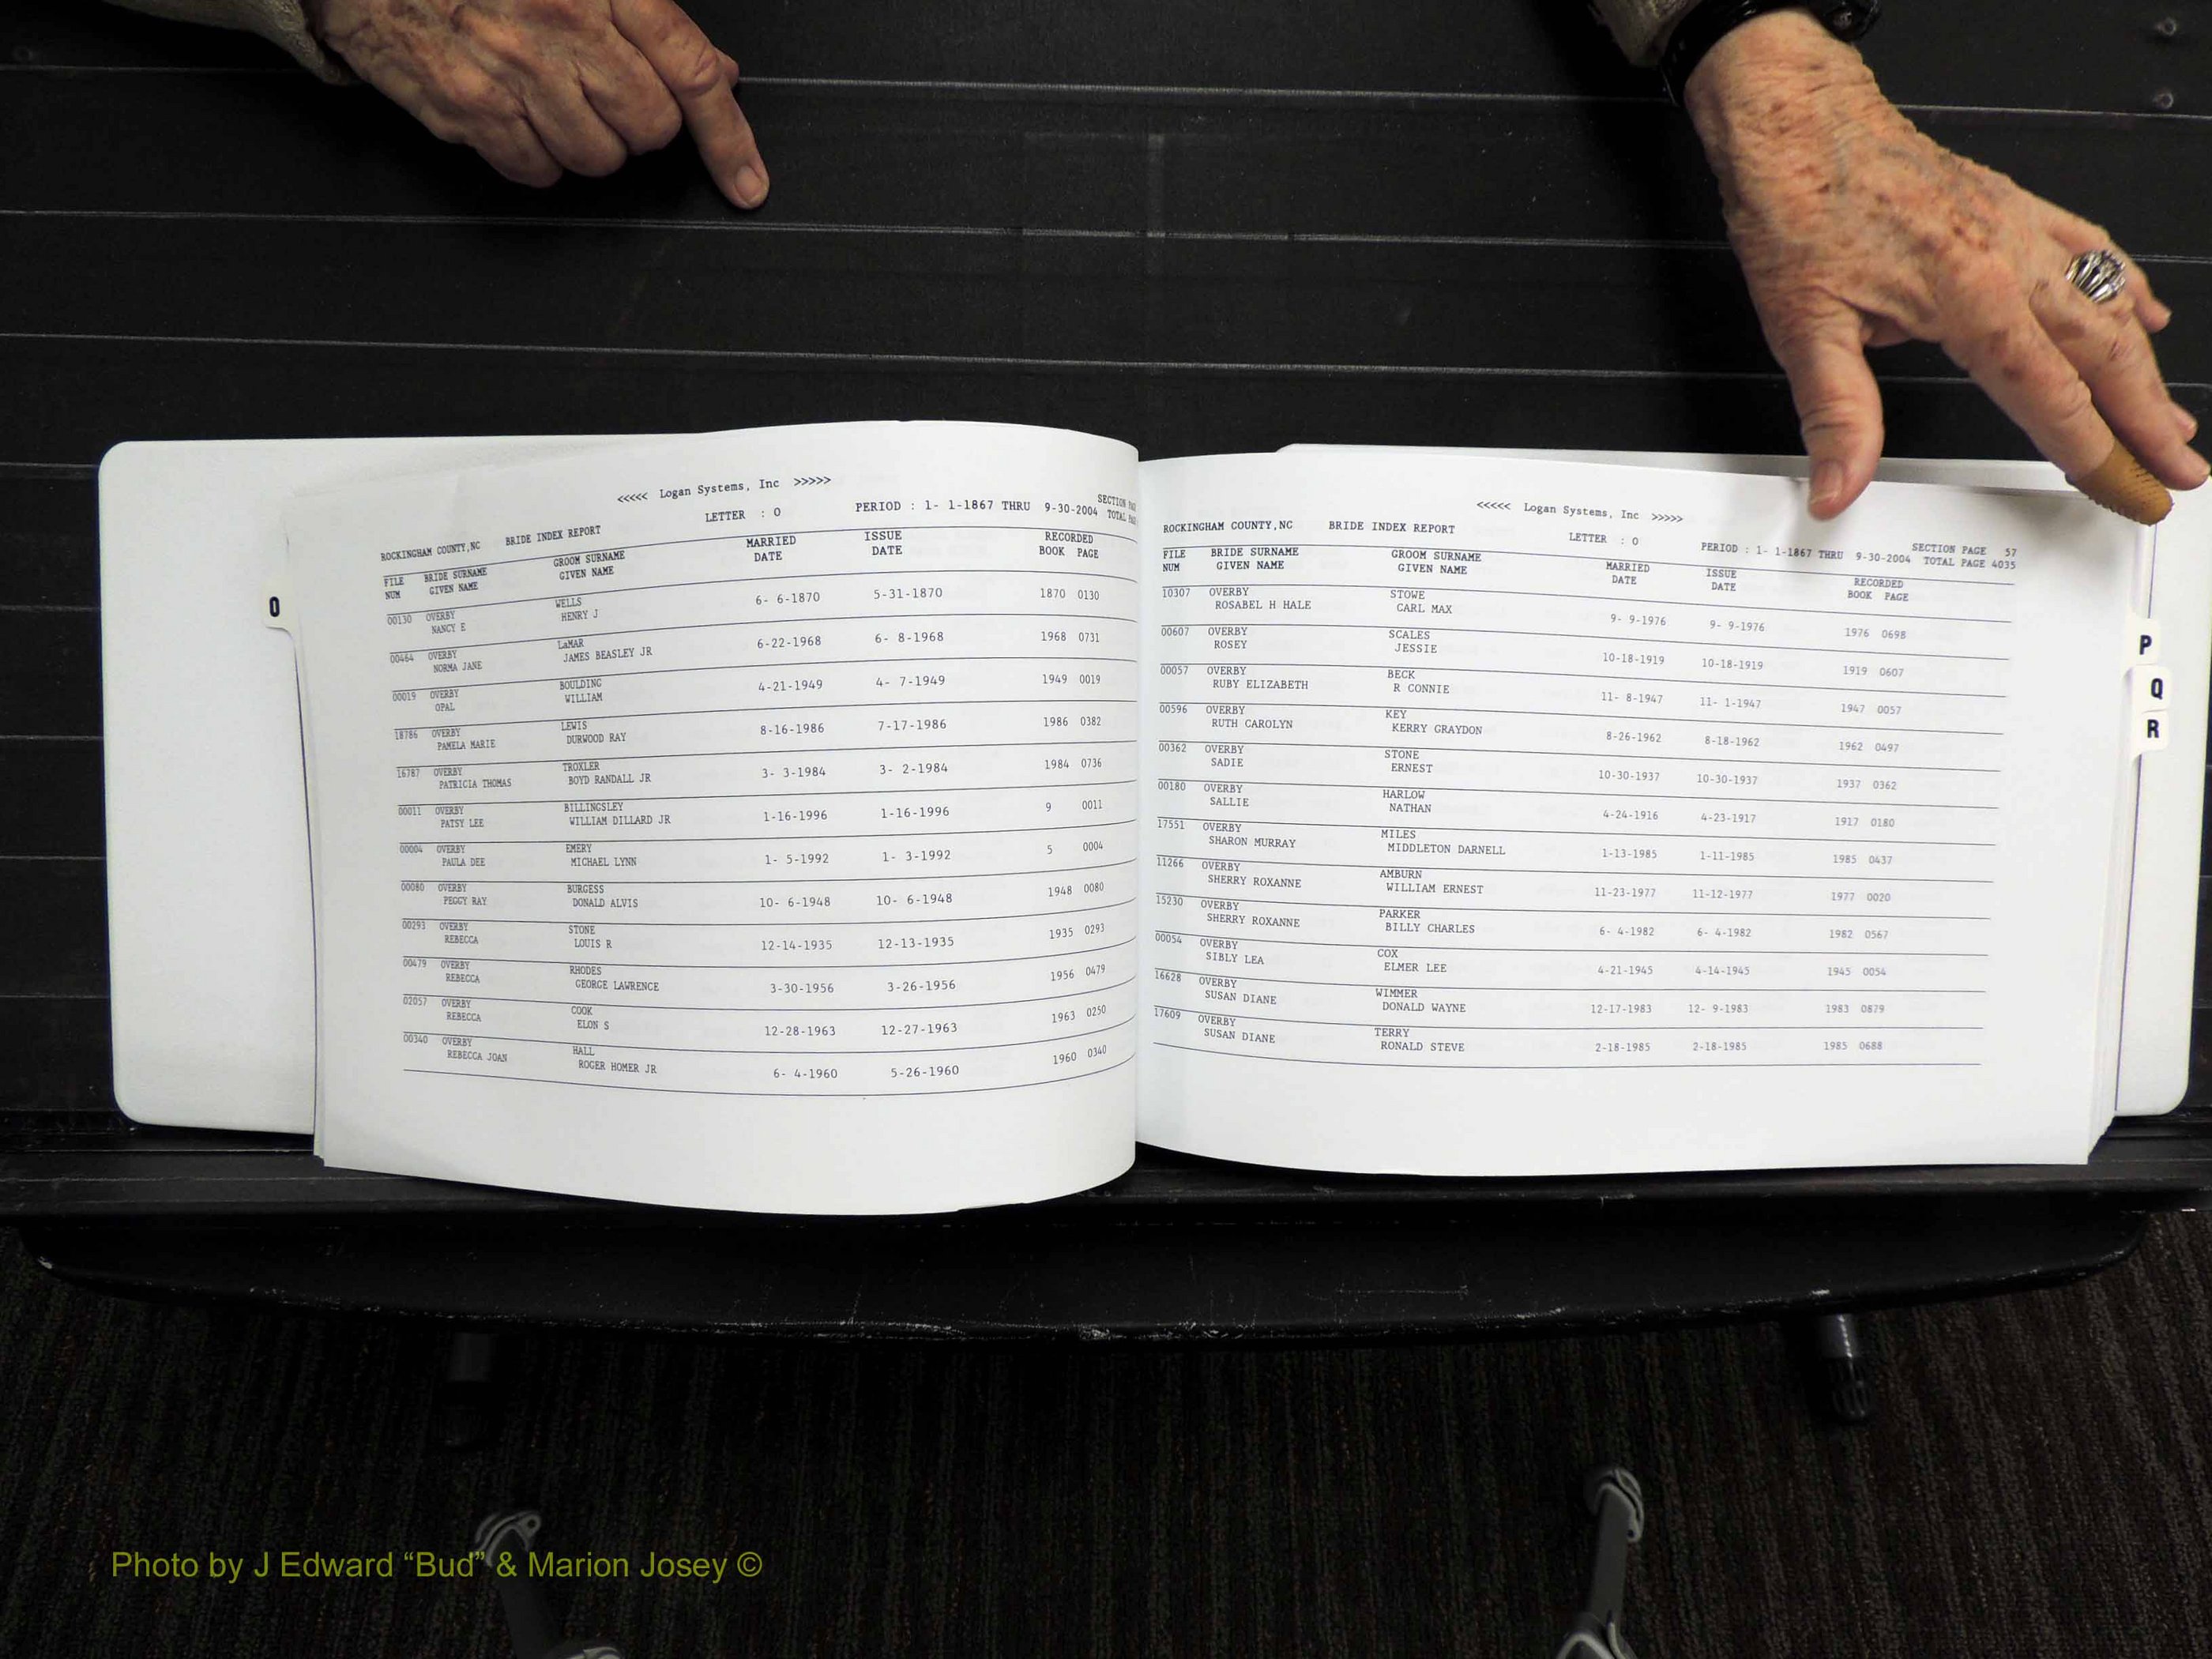 <<<<< Logan Systems, Inc >>>>>
ROCKINGHAM COUNTY,NC BRIDE INDEX REPORT LETTER : O PERIOD : 1- 1-1867 THRU 9-30-2004 SECTION
TOTAL
FILE BRIDE SURNAME GROOM SURNAME MARRIED ISSUE RECORDED
NUM GIVEN NAME GIVEN NAME DATE DATE BOOK PAGE
00130 OVERBY WELLS
NANCY E HENRY J 6- 6-1870 5-31-1870 1870 0130
00464 OVERBY LaMAR
NORMA JANE JAMES BEASLEY JR 6-22-1968 6- 8-1968 1968 0731
00019 OVERBY BOULDING
OPAL WILLIAM 4-21-1949 4- 7-1949 1949 0019
18786 OVERBY LEWIS
PAMELA MARIE DURWOOD RAY 8-16-1986 7-17-1986 1986 0382
16787 OVERBY TROXLER
PATRICIA THOMAS BOYD RANDALL JR 3- 3-1984 3- 2-1984 1984 0736
00011 OVERBY BILLINGSLEY
PATSY LEE WILLIAM DILLARD JR 1-16-1996 1-16-1996 9 0011
00004 OVERBY EMERY
PAULA DEE MICHAEL LYNN 1- 5-1992 1- 3-1992 5 0004
00080 OVERBY BURGESS
PEGGY RAY DONALD ALVIS 10- 6-1948 10- 6-1948 1948 0080
00293 OVERBY STONE
REBECCA LOUIS R 12-14-1935 12-13-1935 1935 0293
00479 OVERBY RHODES
REBECCA GEORGE LAWRENCE 3-30-1956 3-26-1956 1956 0479
02057 OVERBY COOK
REBECCA ELON S 12-28-1963 12-27-1963 1963 0250
00340 OVERBY HALL
REBECCA JOAN ROGER HOMER JR 6- 4-1960 5-26-1960 1960 0340
O
<<<<< Logan Systems, Inc >>>>>
ROCKINGHAM COUNTY,NC BRIDE INDEX REPORT LETTER : O SECTION PAGE 57
PERIOD : 1- 1-1867 THRU 9-30-2004 TOTAL PAGE 4035
FILE BRIDE SURNAME GROOM SURNAME MARRIED ISSUE RECORDED
NUM GIVEN NAME GIVEN NAME DATE DATE BOOK PAGE
10307 OVERBY STOWE
ROSABEL H HALE CARL MAX 9- 9-1976 9- 9-1976 1976 0698
00607 OVERBY SCALES
ROSEY JESSIE 10-18-1919 10-18-1919 1919 0607
00057 OVERBY BECK
RUBY ELIZABETH R CONNIE 11- 8-1947 11- 1-1947 1947 0057
00596 OVERBY KEY
RUTH CAROLYN KERRY GRAYDON 8-26-1962 8-18-1962 1962 0497
00362 OVERBY STONE
SADIE ERNEST 10-30-1937 10-30-1937 1937 0362
00180 OVERBY HARLOW
SALLIE NATHAN 4-24-1916 4-23-1917 1917 0180
17551 OVERBY MILES
SHARON MURRAY MIDDLETON DARNELL 1-13-1985 1-11-1985 1985 0437
11266 OVERBY AMBURN
SHERRY ROXANNE WILLIAM ERNEST 11-23-1977 11-12-1977 1977 0020
15230 OVERBY PARKER
SHERRY ROXANNE BILLY CHARLES 6- 4-1982 6- 4-1982 1982 0567
00054 OVERBY COX
SIBLY LEA ELMER LEE 4-21-1945 4-14-1945 1945 0054
16628 OVERBY WIMMER
SUSAN DIANE DONALD WAYNE 12-17-1983 12- 9-1983 1983 0879
17609 OVERBY TERRY
SUSAN DIANE RONALD STEVE 2-18-1985 2-18-1985 1985 0688
P
Q
R
Photo by J Edward “Bud” & Marion Josey ©